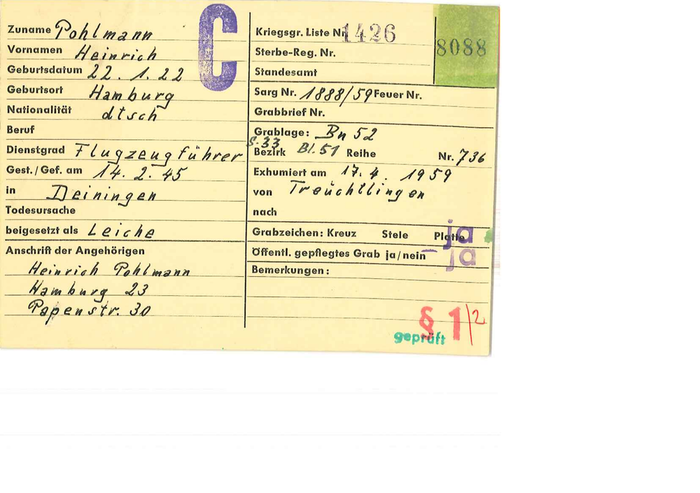 Zuname Pohlmann
Vornamen Heinrich
Geburtsdatum 22. 1. 22
Geburtsort Hamburg
Nationalität dtsch
Beruf
Dienstgrad Flugzeugführer
Gest./Gef. am 14. 2. 45
in Deiningen
Todesursache
beigesetzt als Leiche
Anschrift der Angehörigen
Heinrich Pohlmann
Hamburg 23
Papenstr. 30
C
Kriegsgr. Liste Nr. 1426
8088
Sterbe-Reg. Nr.
Standesamt
Sarg Nr. 1888/59 Feuer Nr.
Grabbrief Nr.
Grablage: Bn 52
S. 33
Bezirk Bl. 51 Reihe Nr. 736
Exhumiert am 17. 4. 1959
von Treuchtlingen
nach
Grabzeichen: Kreuz Stele Platte ja
Öffentl. gepflegtes Grab ja/nein – ja
Bemerkungen:
§ 1/2
geprüft